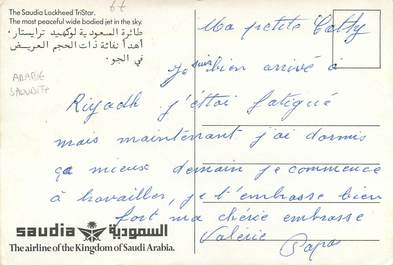 The Saudia Lockheed TriStar.
The most peaceful wide bodied jet in the sky.
طائرة السعودية لوكهيد ترايستار.
أهدأ نفاثة ذات الحجم العريض
في الجو.
ARABIE
SAOUDITE
Ma petite Cathy
Je suis bien arrivé à
Riyadh j'étai fatigué
mais maintenant j'ai dormis
ça mieux demain je commence
à travailler, je t'embrasse bien
fort ma chérie embrasse
Valérie Papa
saudia السعودية
The airline of the Kingdom of Saudi Arabia.